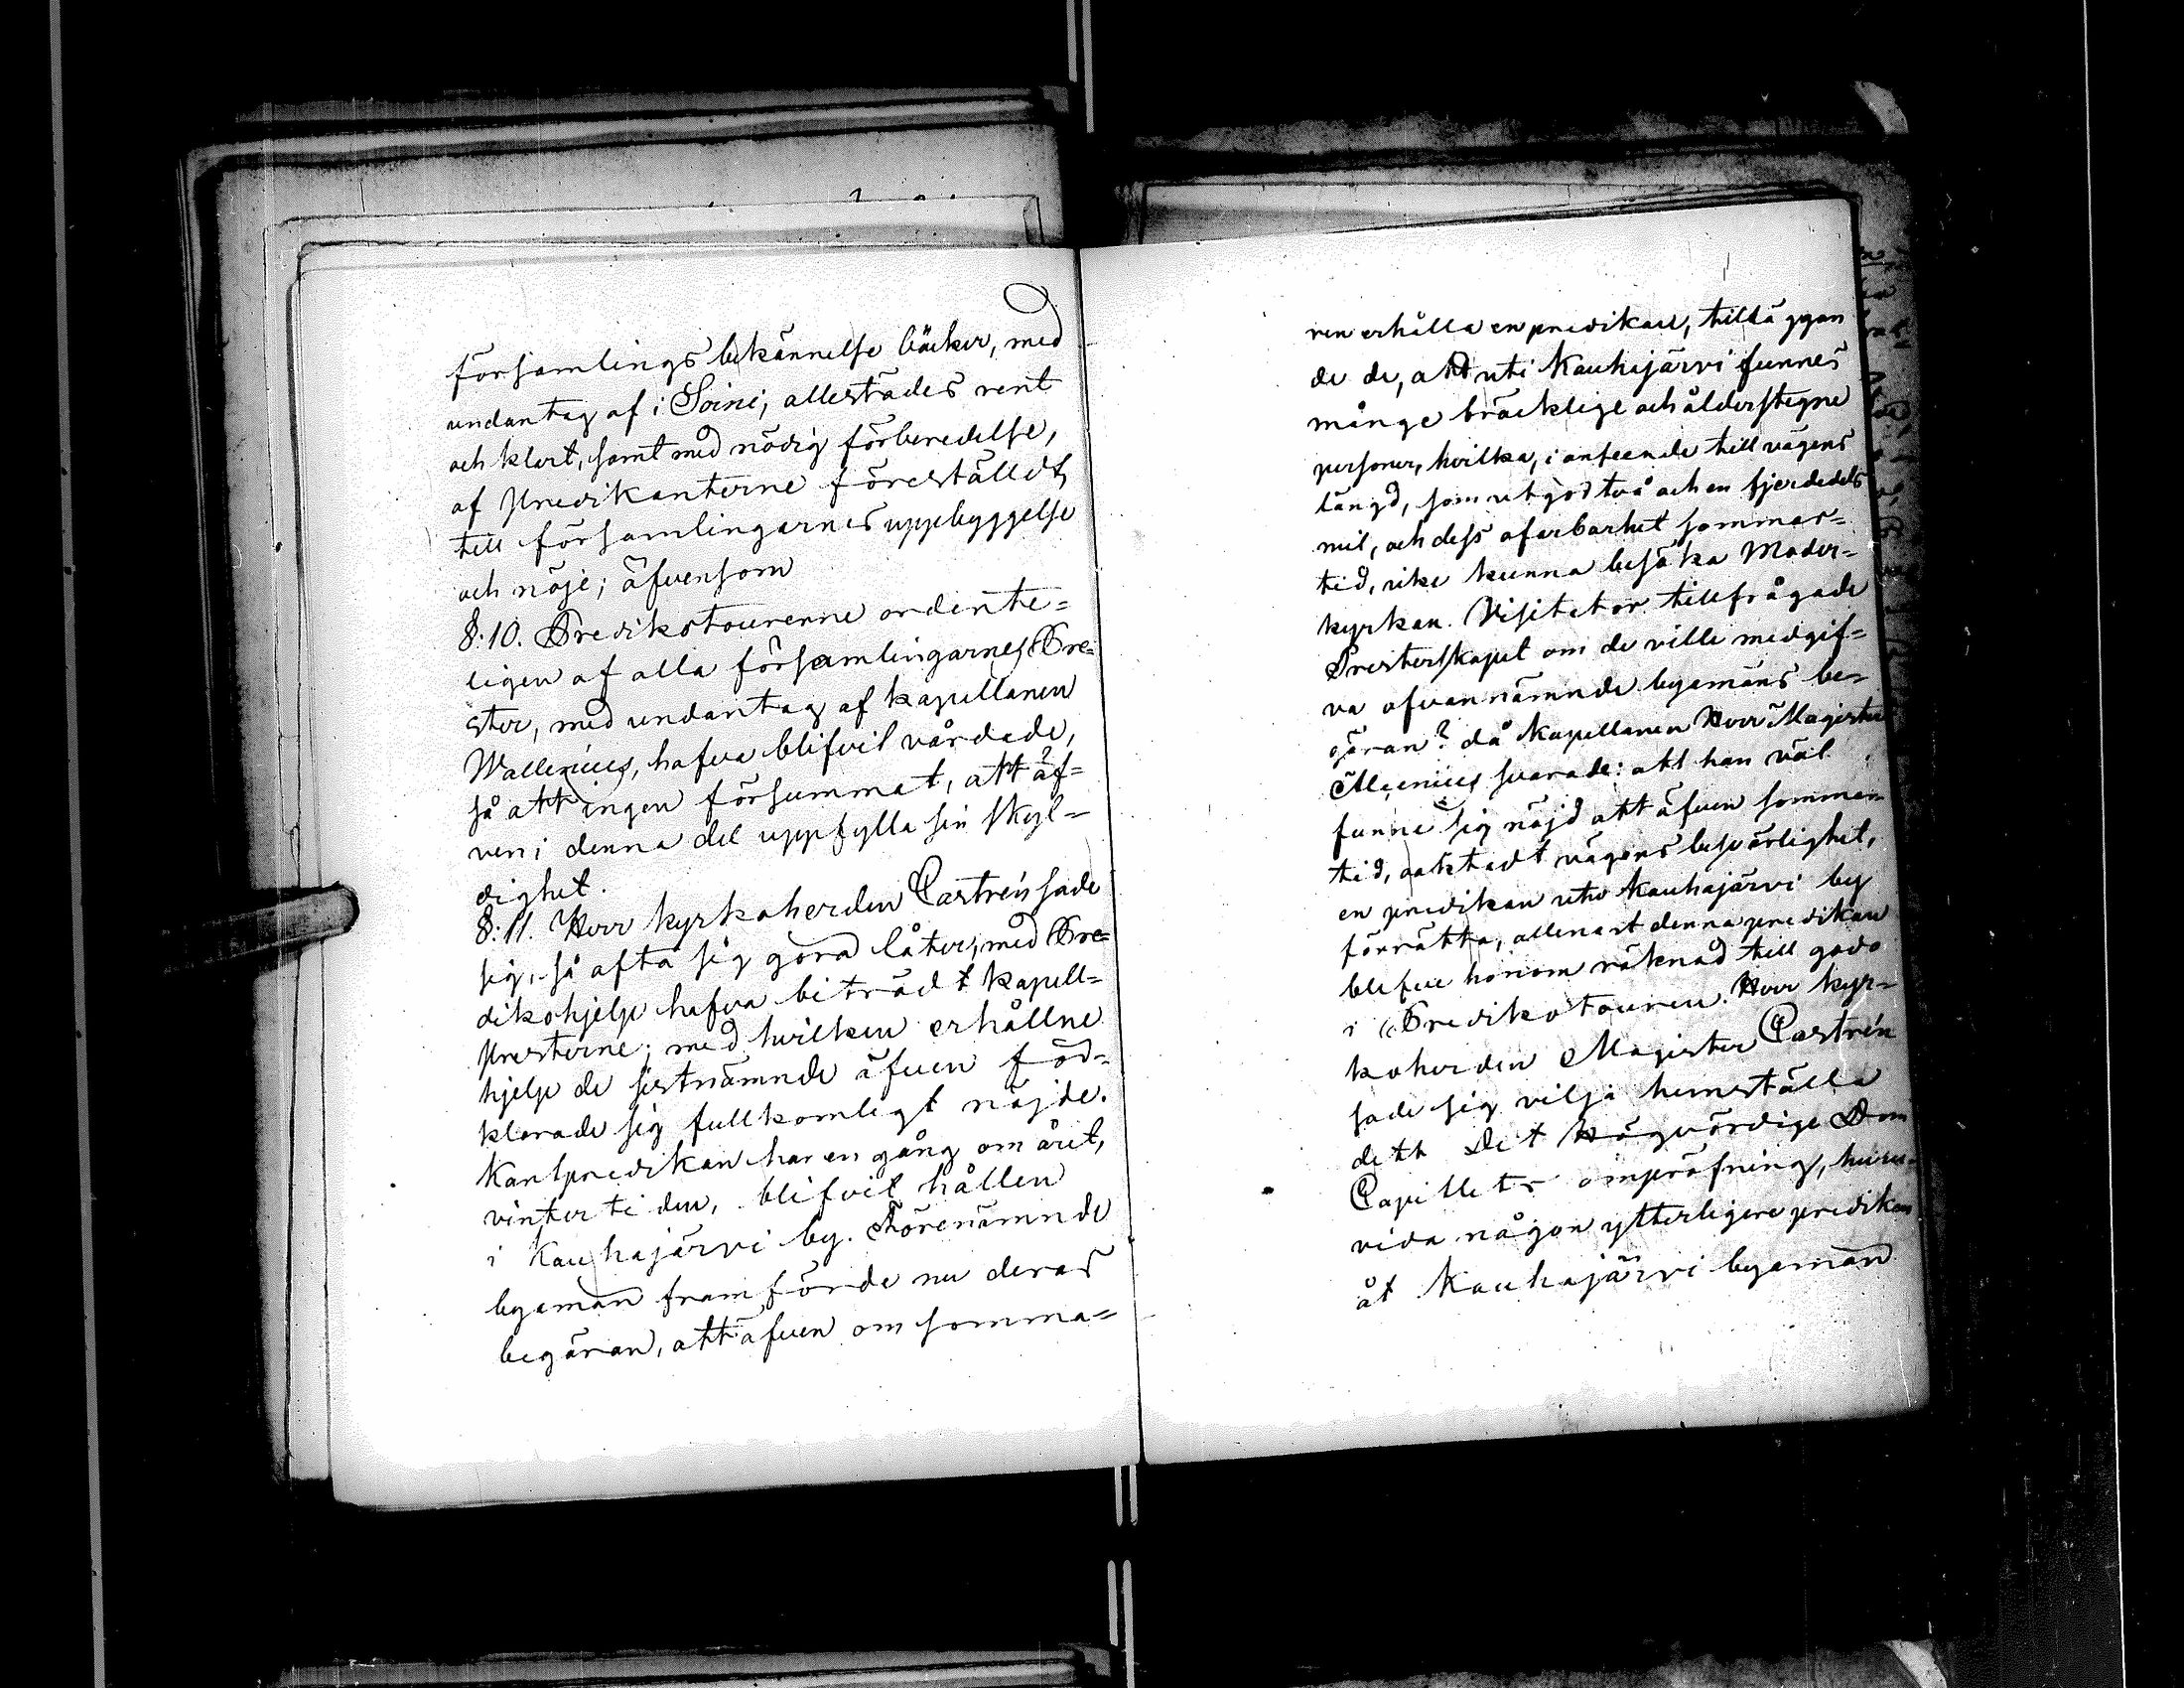 församlings bekännelse böcker, med
undantag af i Soini, allestädes rent
och klart, samt med nödig förberedelse,
af Predikanterne föreställdt
till församlingarnes uppbyggelse
och nöje; äfvensom
§:10. Predikotourerne ordente=
ligen af alla församlingarnes Pre=
ster, med undantag af kapellanen
Wallenius, hafva blifvit vårdade,
så att ingen försummat, att äf=
ven i denna del uppfylla sin skyl=
dighet.
§:11. Herr kyrkoherden Castrén sade
sig, så ofta sig göra låter, med Pre=
dikohjelp hafva biträdt kapell=
presterne; med hvilken erhållne
hjelp de sistnämnde äfven för=
klarade sig fullkomligt nöjde.
Karlpredikan har en gång om året,
vintertiden, blifvit hållen
i Kauhajärvi by. Förenämnde
byamän framförde nu deras
begäran, att äfven om somma=
ren erhålla en predikan, tilläggan
de de, att uti Kauhajärvi funnes
månge bräcklige och ålderstegne
personer, hvilka, i anseende till vägens
längd, som utgör två och en fjerdedels
mil, och dess ofarbarhet sommar=
tid, icke kunna besöka Moder=
kyrkan. Visitator tillfrågade
Presterskapet om de ville medgif=
va ofvannämnde byamäns be=
gäran? då Kapellanen Herr Magister
Alcenius svarade: att han väl
funne sig nöjd att äfven sommar=
tid, oaktadt vägens besvärlighet,
en predikan uti Kauhajärvi by
förrätta, allenast denna predikan
blefve honom räknad till godo
i Predikotouren. Herr kyr=
koherden Magister Castrén
sade sig vilja hemställa
dett Det Högvördige Dom
Capitlets ompröfning, huru=
vida någon ytterligere predikan
åt Kauhajärvi byamän